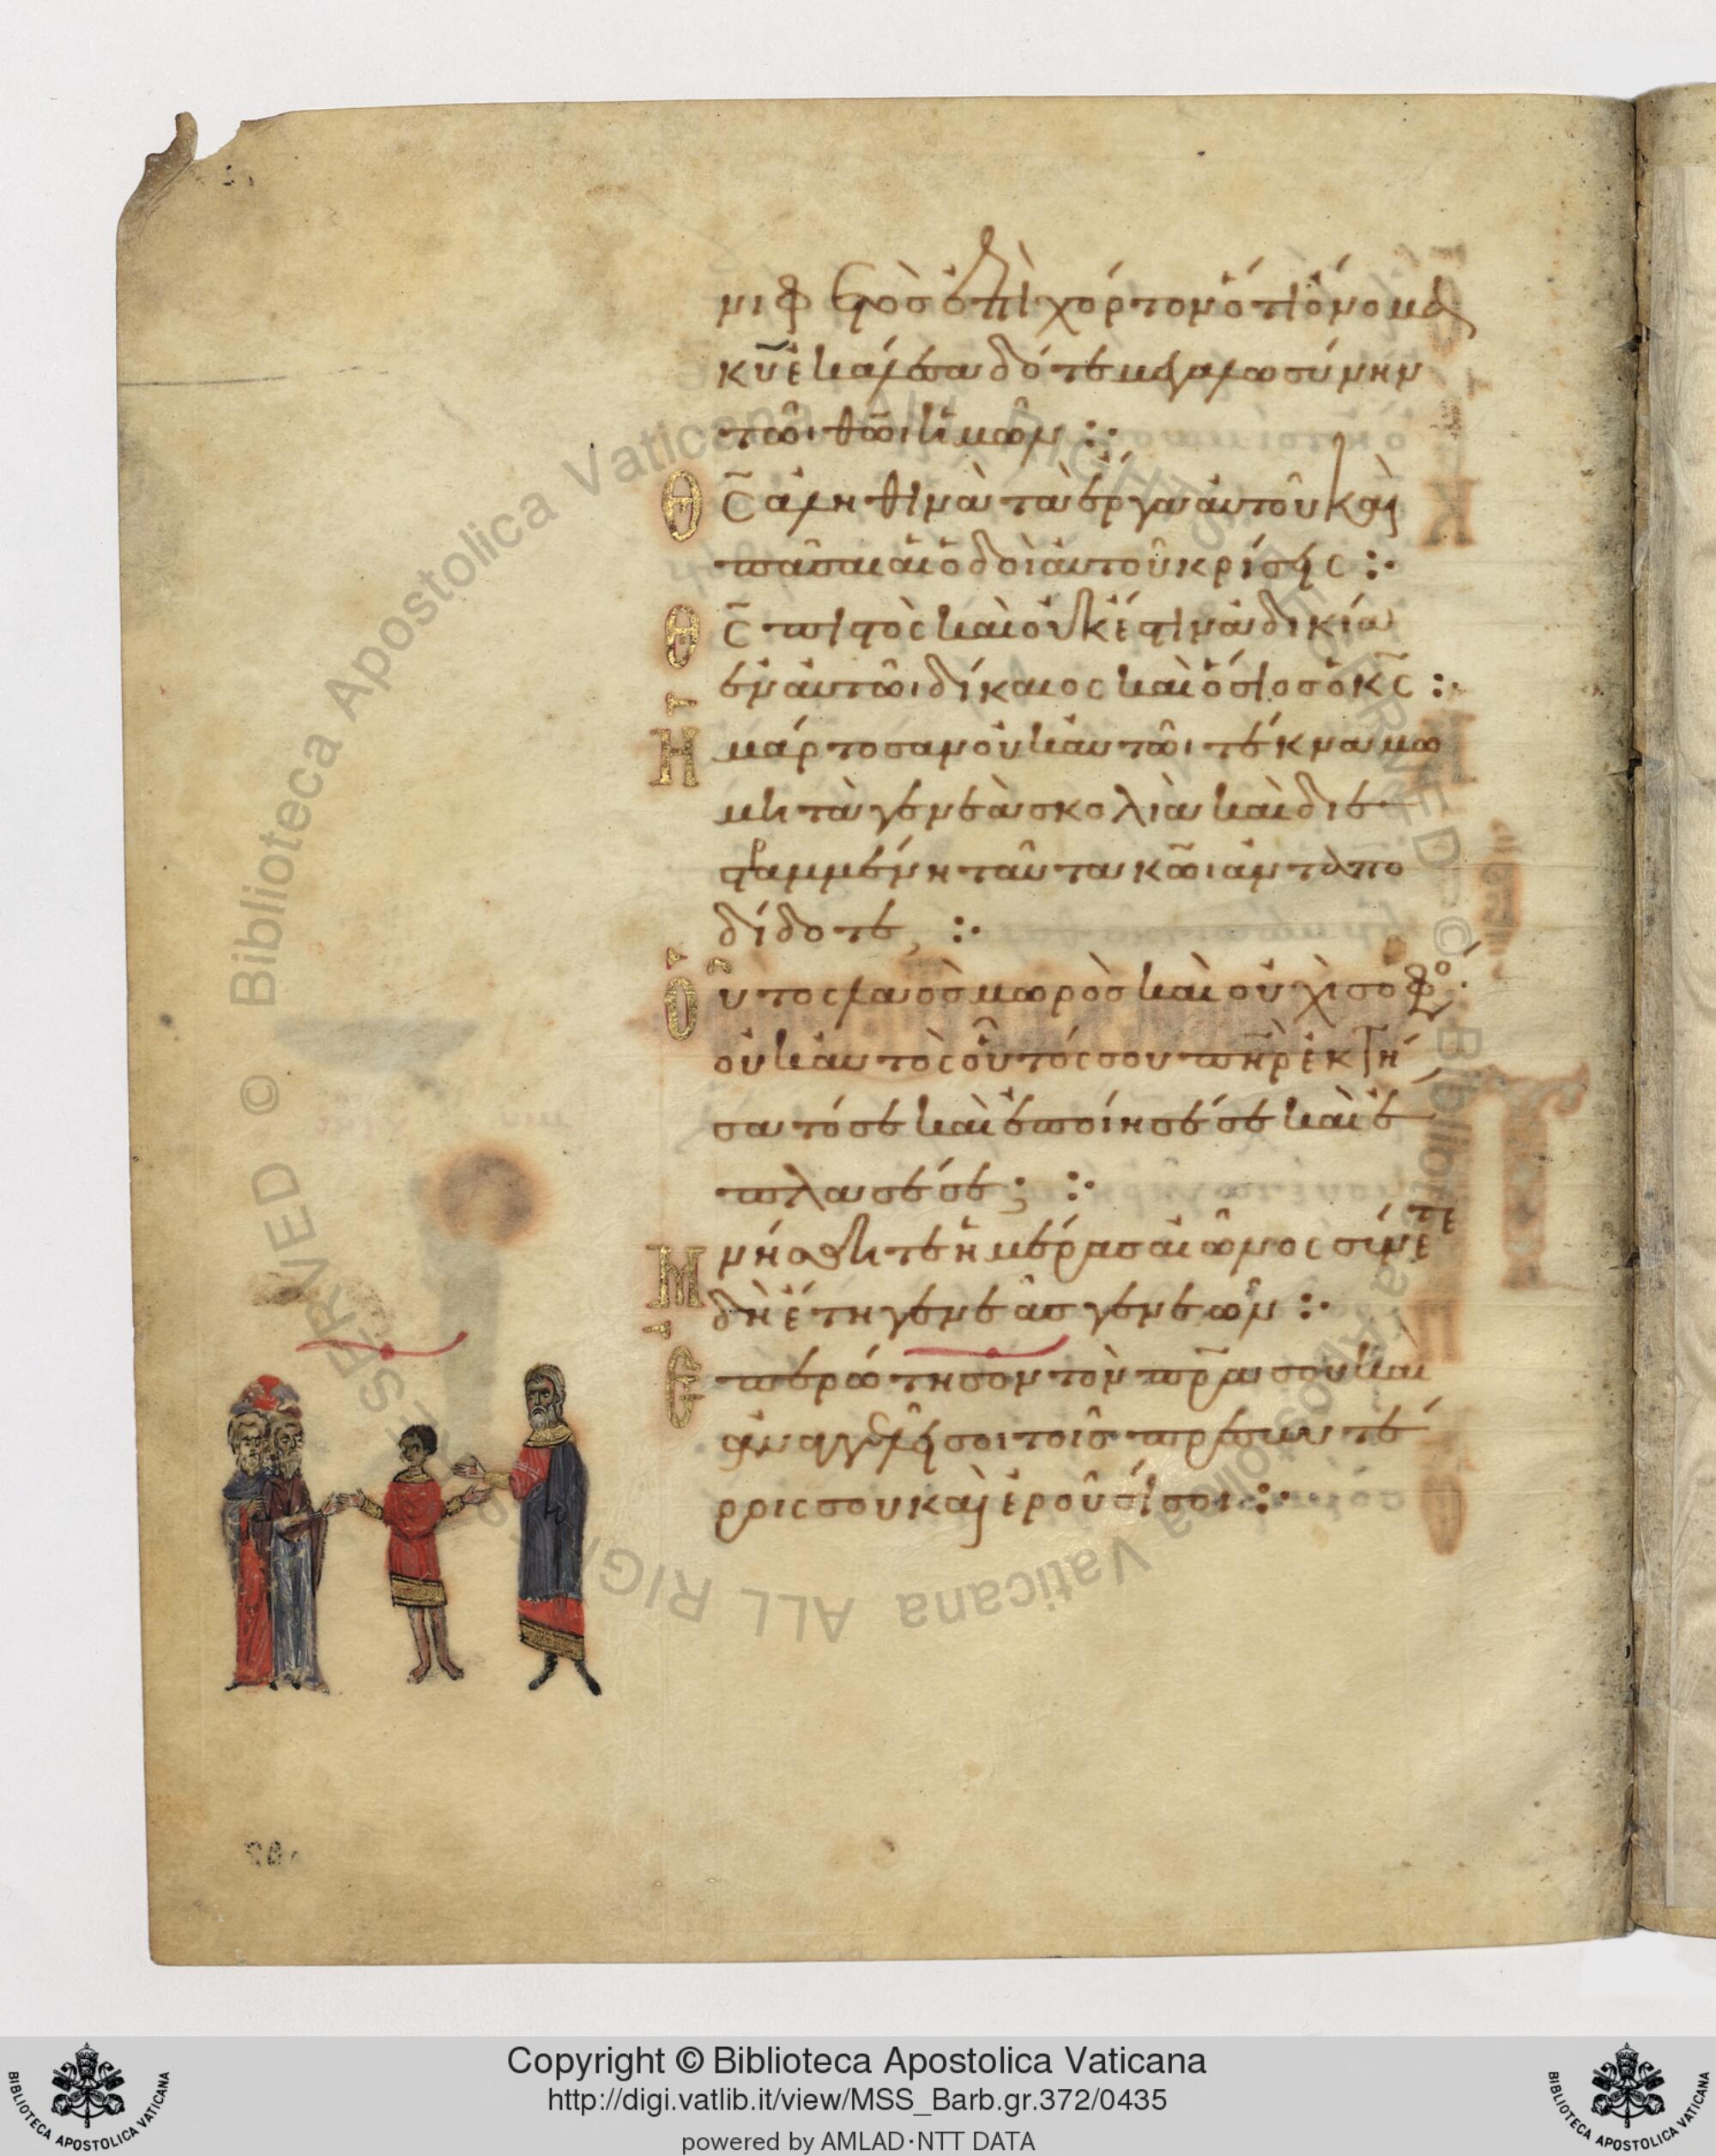 νιφετὸς ἐπὶ χόρτον ὅτι ὄνομα
κυ ἐκάλεσα δότε μεγαλωσύνην
τῶι θῶι ἡμῶν :·
Θς ἀληθινὰ τὰ ἔργα αὐτοῦ καὶ
πᾶσαι αἱ ὁδοὶ αὐτοῦ κρίσεις :·
Θς πιστὸς καὶ οὐκ ἔστιν ἀδικία
ἐν αὐτῶι δίκαιος καὶ ὅσιος ὁ κς :·
Ημάρτοσαν οὐκ αὐτῶι τέκνα μω
μητὰ γενεὰ σκολιὰ καὶ διε
στραμμένη ταῦτα κωι ἀνταπο
δίδοτε :·
Οὗτος λαὸς μωρὸς καὶ οὐχὶ σοφός·
οὐκ αὐτὸς οὗτός σου πηρ ἐκτή
σατό σε καὶ ἐποίησέ σε καὶ ἔ
πλασέ σε; :·
Μνήσθητε ἡμέρας αἰῶνος σύνετε
δὴ ἔτη γενεᾶς γενεῶν :·
Επερώτησον τὸν πρα σου καὶ
ἀναγγελεῖ σοι τοὺς πρεσβυτέ
ρους σου καὶ ἐροῦσί σοι :·
Copyright © Biblioteca Apostolica Vaticana
http://digi.vatlib.it/view/MSS_Barb.gr.372/0435
powered by AMLAD·NTT DATA
BIBLIOTECA APOSTOLICA VATICANA
BIBLIOTECA APOSTOLICA VATICANA
© Biblioteca Apostolica Vaticana ALL RIGHTS RESERVED © Biblioteca Apostolica Vaticana ALL RIGHTS RESERVED